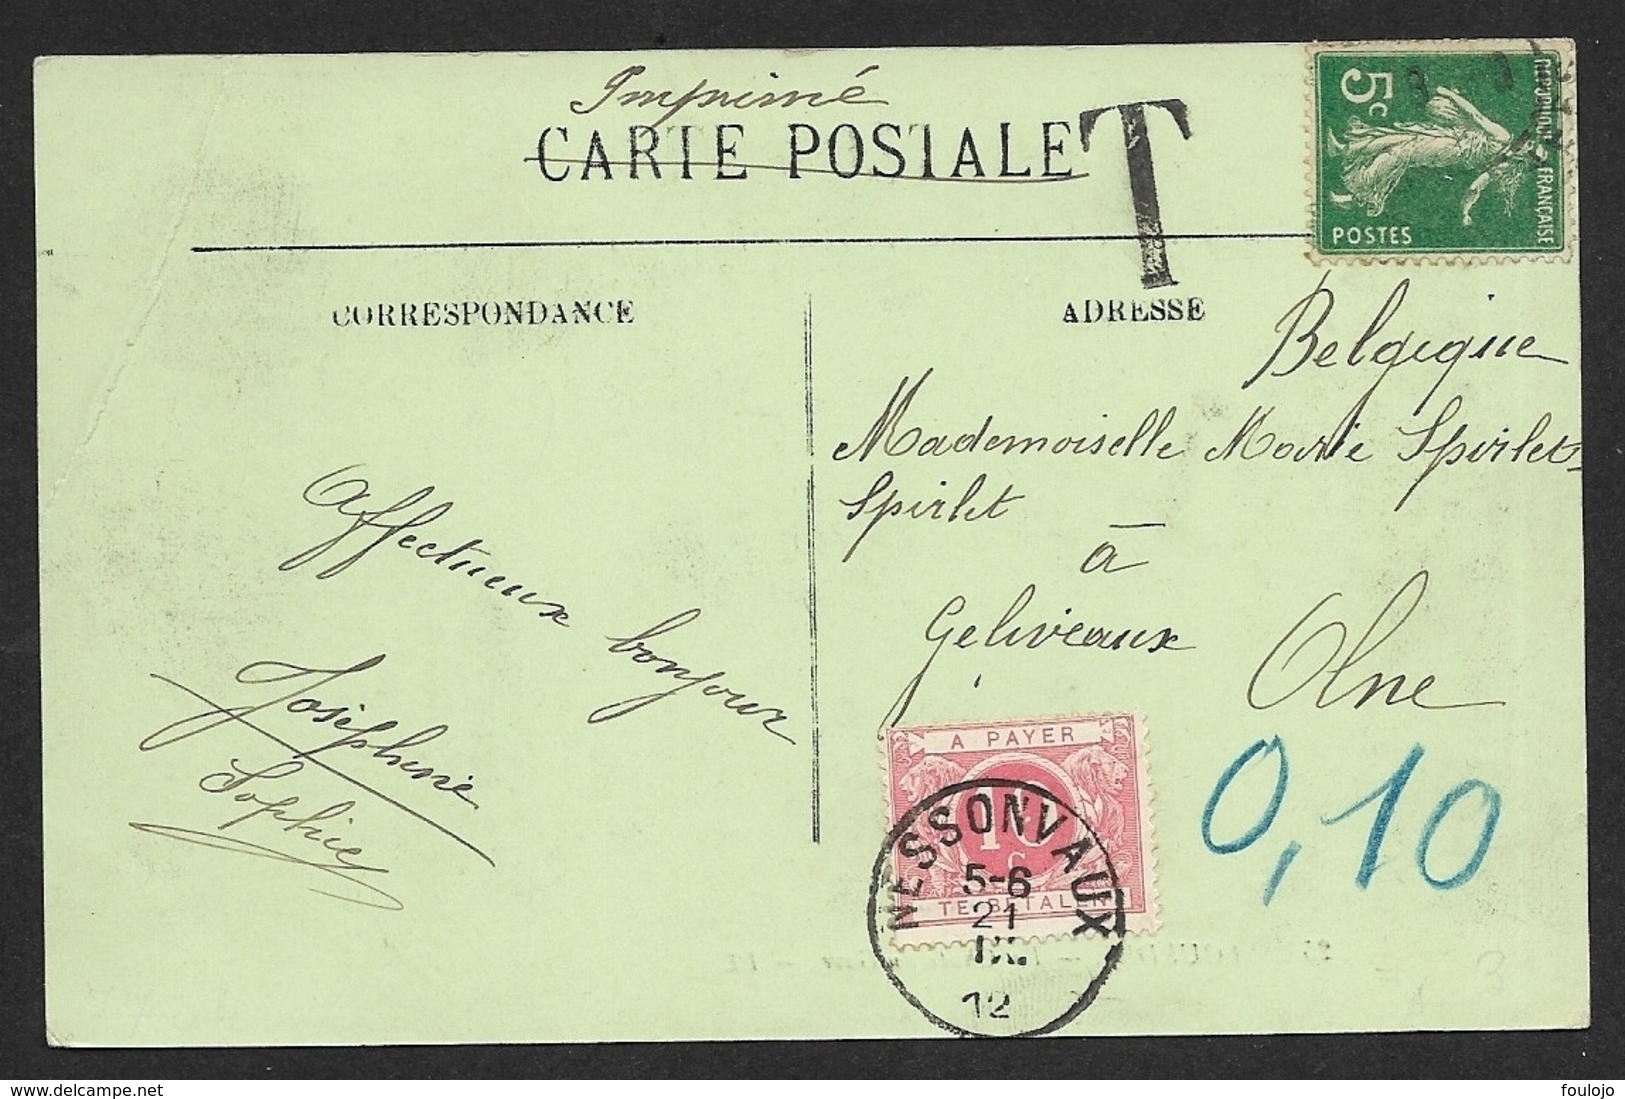 Imprimé
CARTE POSTALE
T
5c
REPUBLIQUE FRANÇAISE
POSTES
CORRESPONDANCE
ADRESSE
Belgique
Mademoiselle Marie Spirlet
Spirlet
à
Geliveaux
Olne
Affectueux bonjour
Joséphine
Sophie
A PAYER
10
c
TE BETALEN
NESSONVAUX
5-6
21
IX
12
0,10
delcampe.net
foulojo